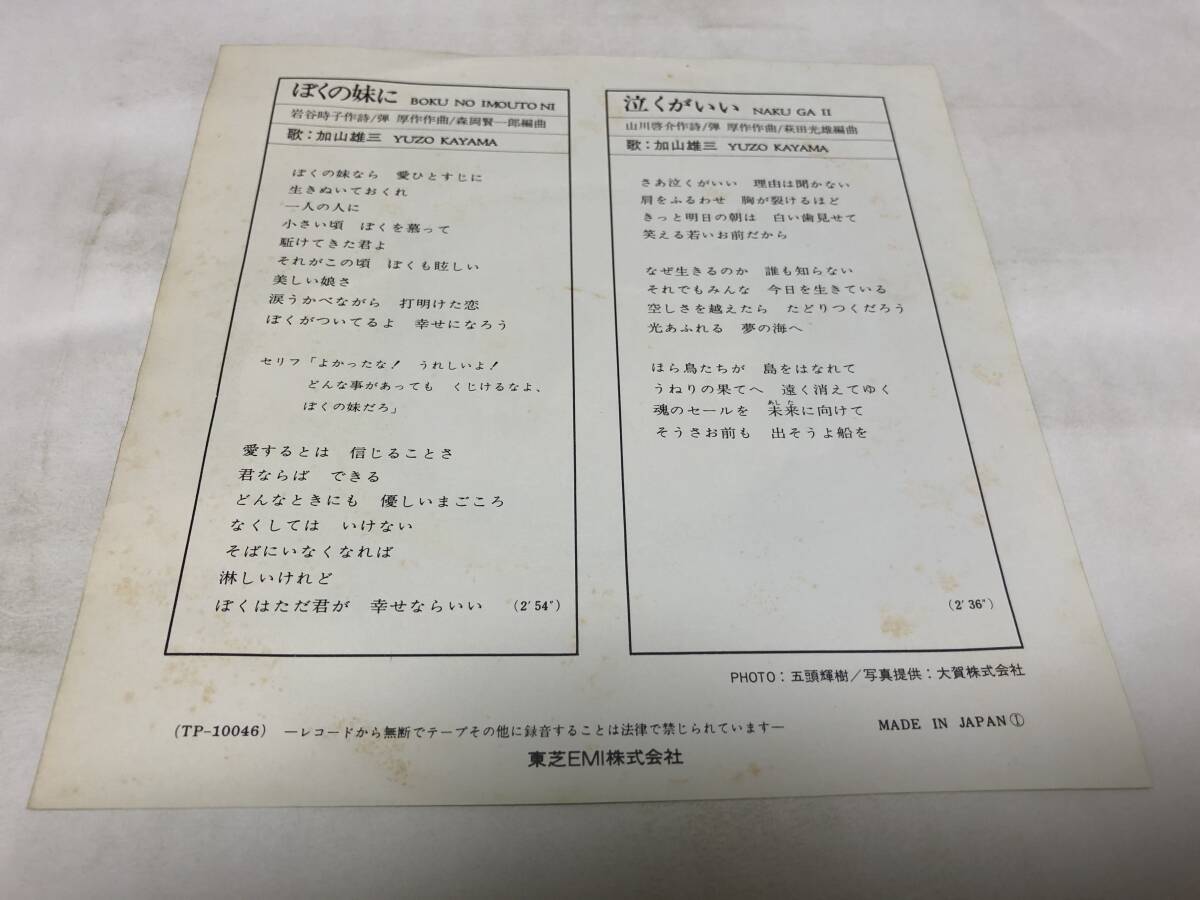 ぼくの妹に BOKU NO IMOUTO NI
岩谷時子作詩/弾 厚作作曲/森岡賢一郎編曲
歌：加山雄三 YUZO KAYAMA
ぼくの妹なら 愛ひとすじに
生きぬいておくれ
一人の人に
小さい頃 ぼくを慕って
駈けてきた君よ
それがこの頃 ぼくも眩しい
美しい娘さ
涙うかべながら 打明けた恋
ぼくがついてるよ 幸せになろう
セリフ「よかったな！ うれしいよ！
どんな事があっても くじけるなよ、
ぼくの妹だろ」
愛するとは 信じることさ
君ならば できる
どんなときにも 優しいまごころ
なくしては いけない
そばにいなくなれば
淋しいけれど
ぼくはただ君が 幸せならいい (2′54″)
泣くがいい NAKU GA II
山川啓介作詩/弾 厚作作曲/萩田光雄編曲
歌：加山雄三 YUZO KAYAMA
さあ泣くがいい 理由は聞かない
肩をふるわせ 胸が裂けるほど
きっと明日の朝は 白い歯見せて
笑える若いお前だから
なぜ生きるのか 誰も知らない
それでもみんな 今日を生きている
空しさを越えたら たどりつくだろう
光あふれる 夢の海へ
ほら鳥たちが 島をはなれて
うねりの果てへ 遠く消えてゆく
あした
魂のセールを 未来に向けて
そうさお前も 出そうよ船を
(2′36″)
PHOTO：五頭輝樹／写真提供：大賀株式会社
(TP-10046) —レコードから無断でテープその他に録音することは法律で禁じられています— MADE IN JAPAN Ⓣ
東芝EMI株式会社